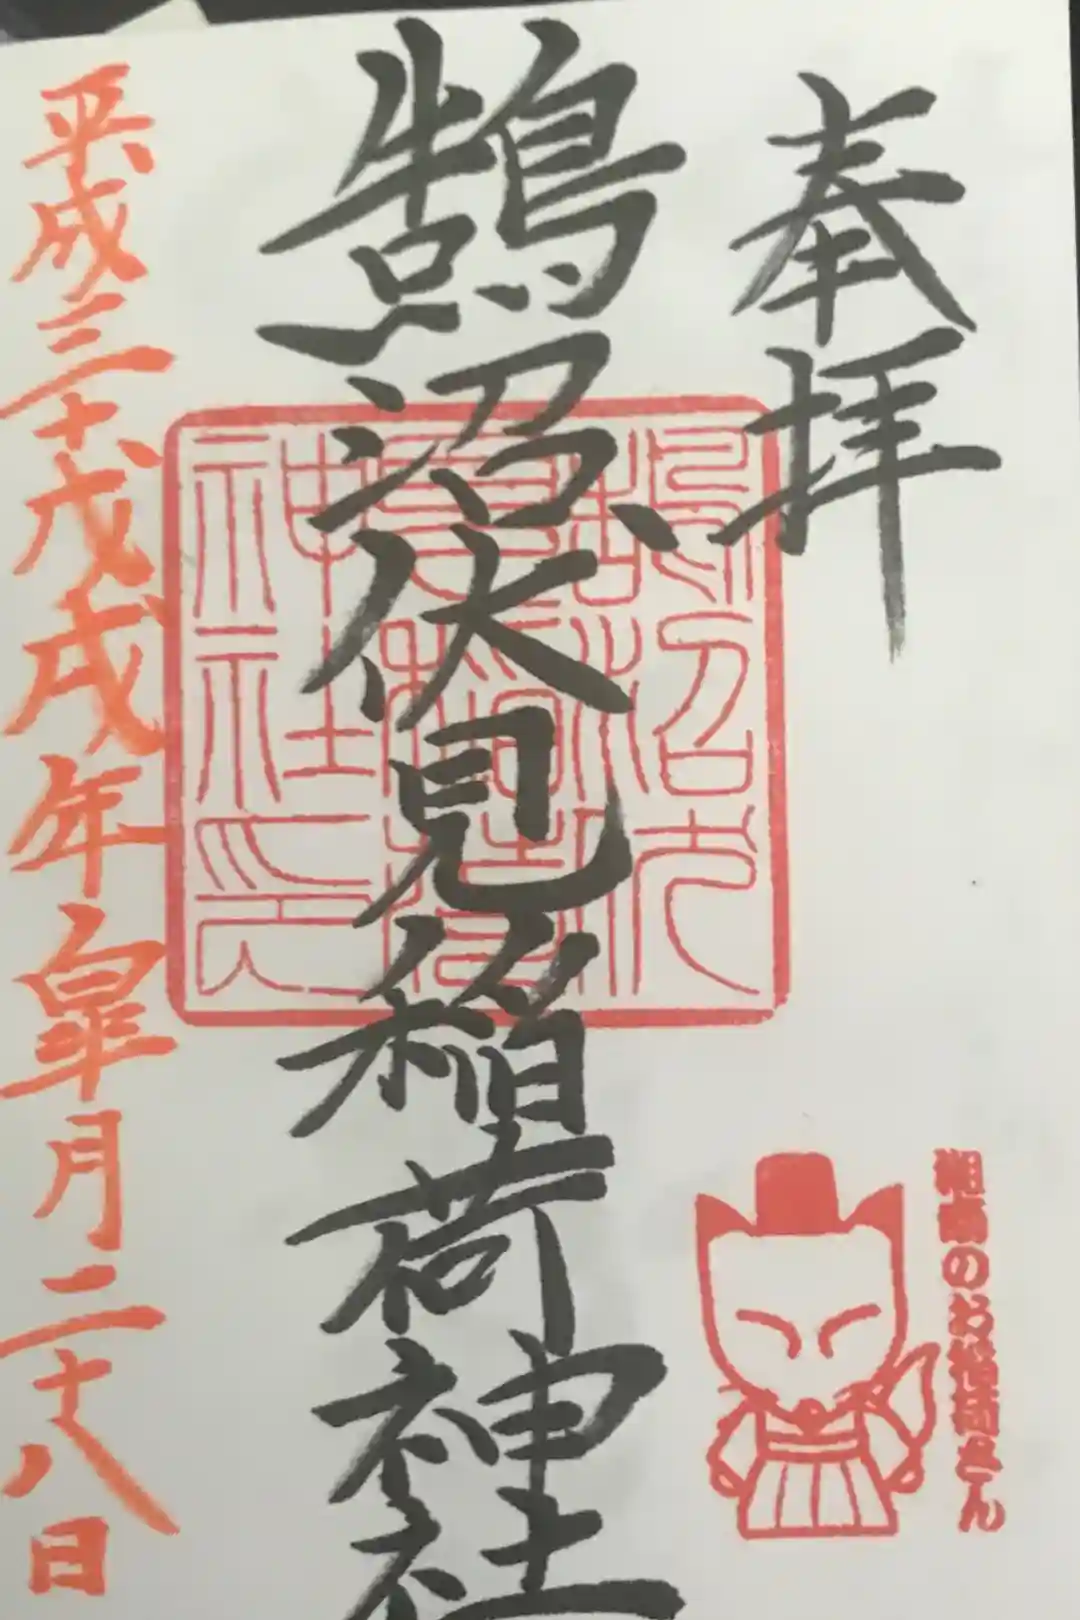 奉拝
鵠沼伏見稲荷神社
鵠沼伏見稲荷神社印
平成三十戊戌年皐月二十八日
湘南のお稲荷さん